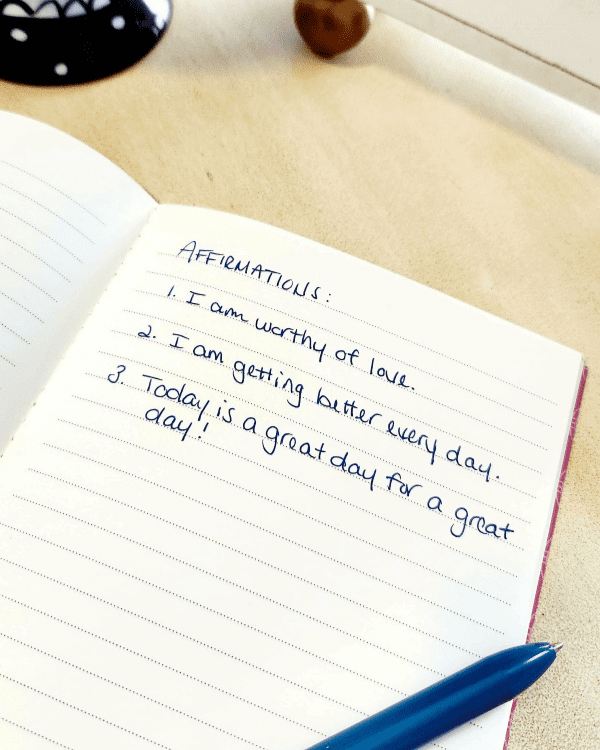 AFFIRMATIONS:
1. I am worthy of love.
2. I am getting better every day.
3. Today is a great day for a great
day!